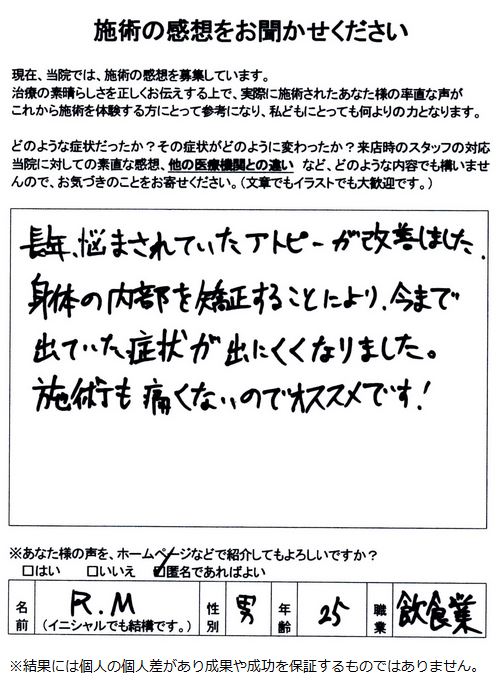 施術の感想をお聞かせください
現在、当院では、施術の感想を募集しています。
治療の素晴らしさを正しくお伝えする上で、実際に施術されたあなた様の率直な声が
これから施術を体験する方にとって参考になり、私どもにとっても何よりの力となります。
どのような症状だったか？その症状がどのように変わったか？来店時のスタッフの対応
当院に対しての素直な感想、他の医療機関との違い など、どのような内容でも構いませ
んので、お気づきのことをお寄せください。（文章でもイラストでも大歓迎です。）
長年、悩まされていたアトピーが改善しました。
身体の内部を矯正することにより、今まで
出ていた症状が出にくくなりました。
施術も痛くないのでオススメです！
※あなた様の声を、ホームページなどで紹介してもよろしいですか？
□はい □いいえ ☑匿名であればよい
名前 R.M （イニシャルでも結構です。） 性別 男 年齢 25 職業 飲食業
※結果には個人の個人差があり成果や成功を保証するものではありません。